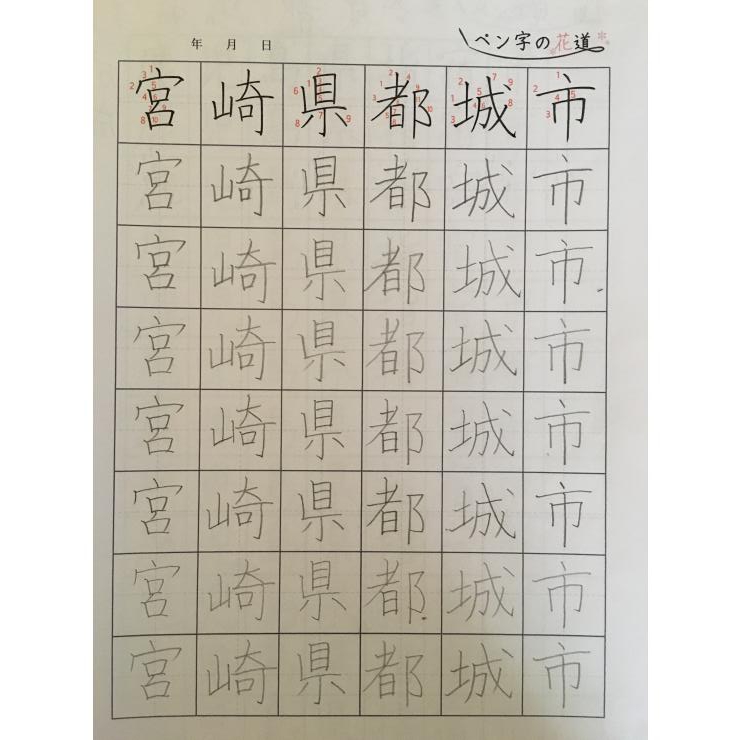 年 月 日
ペン字の花道
宮崎県都城市
宮崎県都城市
宮崎県都城市
宮崎県都城市
宮崎県都城市
宮崎県都城市
宮崎県都城市
宮崎県都城市